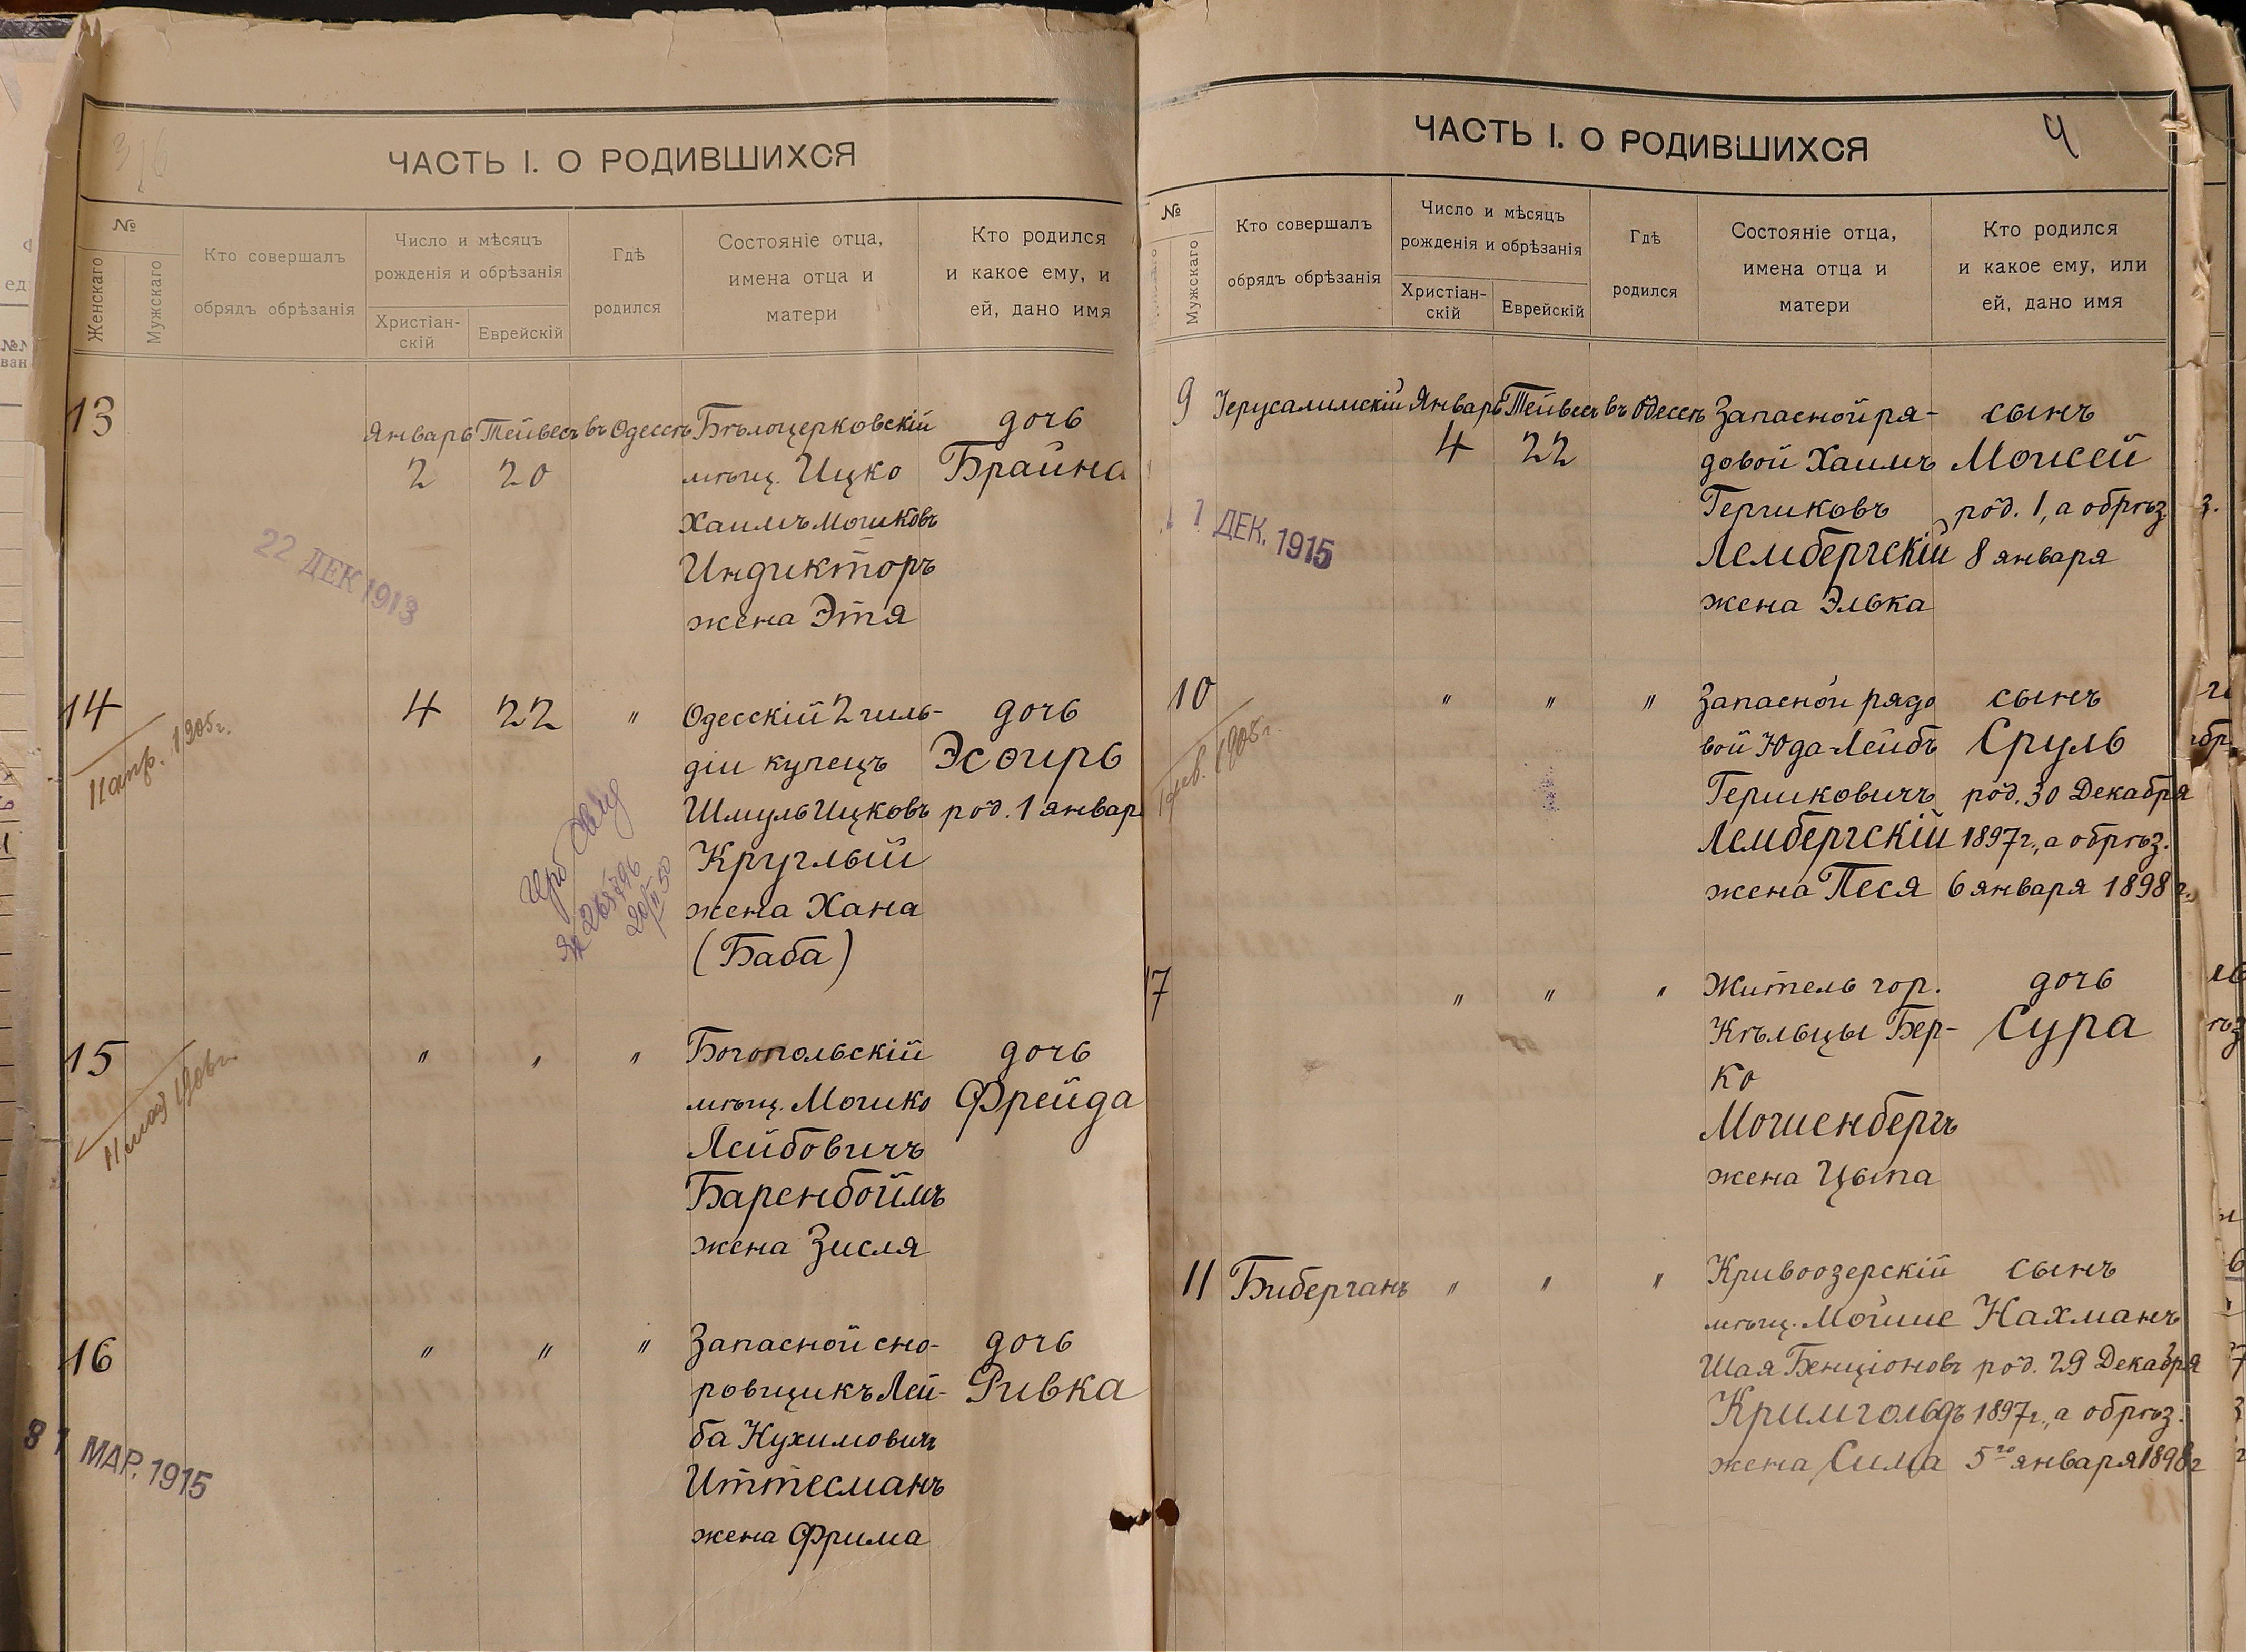 ЧАСТЬ I. О РОДИВШИХСЯ
№
Женскаго
Мужскаго
Кто совершалъ
обрядъ обрѣзанія
Число и мѣсяцъ
рожденія и обрѣзанія
Христіан-
скій
Еврейскій
Гдѣ
родился
Состояніе отца,
имена отца и
матери
Кто родился
и какое ему, и
ей, дано имя
13
Январь Тейвесъ въ Одессѣ Бѣлоцерковскій дочь
2 20 мѣщ. Ицко Брайна
Хаимъ Мошковъ
Индикторъ
жена Этя
22 ДЕК 1913
14 4 22 " Одесскій 2 гиль- дочь
діи купецъ Эсѳирь
Шмуль Ицковъ род. 1 январ
Круглый
жена Хана
(Баба)
11 апр. 1905г.
20/II 50
15 " " " Богопольскій дочь
мѣщ. Мошко Фрейда
Лейбовичъ
Баренбоймъ
жена Зисля
16 " " " Запасной сно- дочь
ровщикъ Лей- Ривка
ба Нухимович
Иттесманъ
жена Фрима
МАР. 1915
ЧАСТЬ I. О РОДИВШИХСЯ
4
№
Мужскаго
Кто совершалъ
обрядъ обрѣзанія
Число и мѣсяцъ
рожденія и обрѣзанія
Христіан-
скій
Еврейскій
Гдѣ
родился
Состояніе отца,
имена отца и
матери
Кто родился
и какое ему, или
ей, дано имя
9 Іерусалимскій Январь Тейвесъ въ Одессѣ Запасной ря- сынъ
4 22 довой Хаимъ Моисей
Гершковъ род. 1, а обрѣз
Лембергскій 8 января
жена Элька
1 ДЕК. 1915
10 " " " Запасной рядо сынъ
вой Юда-Лейбъ Сруль
Гершковичъ род. 30 Декабря
Лембергскій 1897г., а обрѣз.
жена Песя 6 января 1898 г.
17 " " " Житель гор. дочь
Кѣльцы Бер- Сура
ко
Мошенбергъ
жена Цыпа
11 Биберганъ " " " Кривоозерскій сынъ
мѣщ. Мойше Нахманъ
Шая Бенціоновъ род. 29 Декабря
Кримгольдъ 1897г., а обрѣз.
жена Сима 5го января 1898г